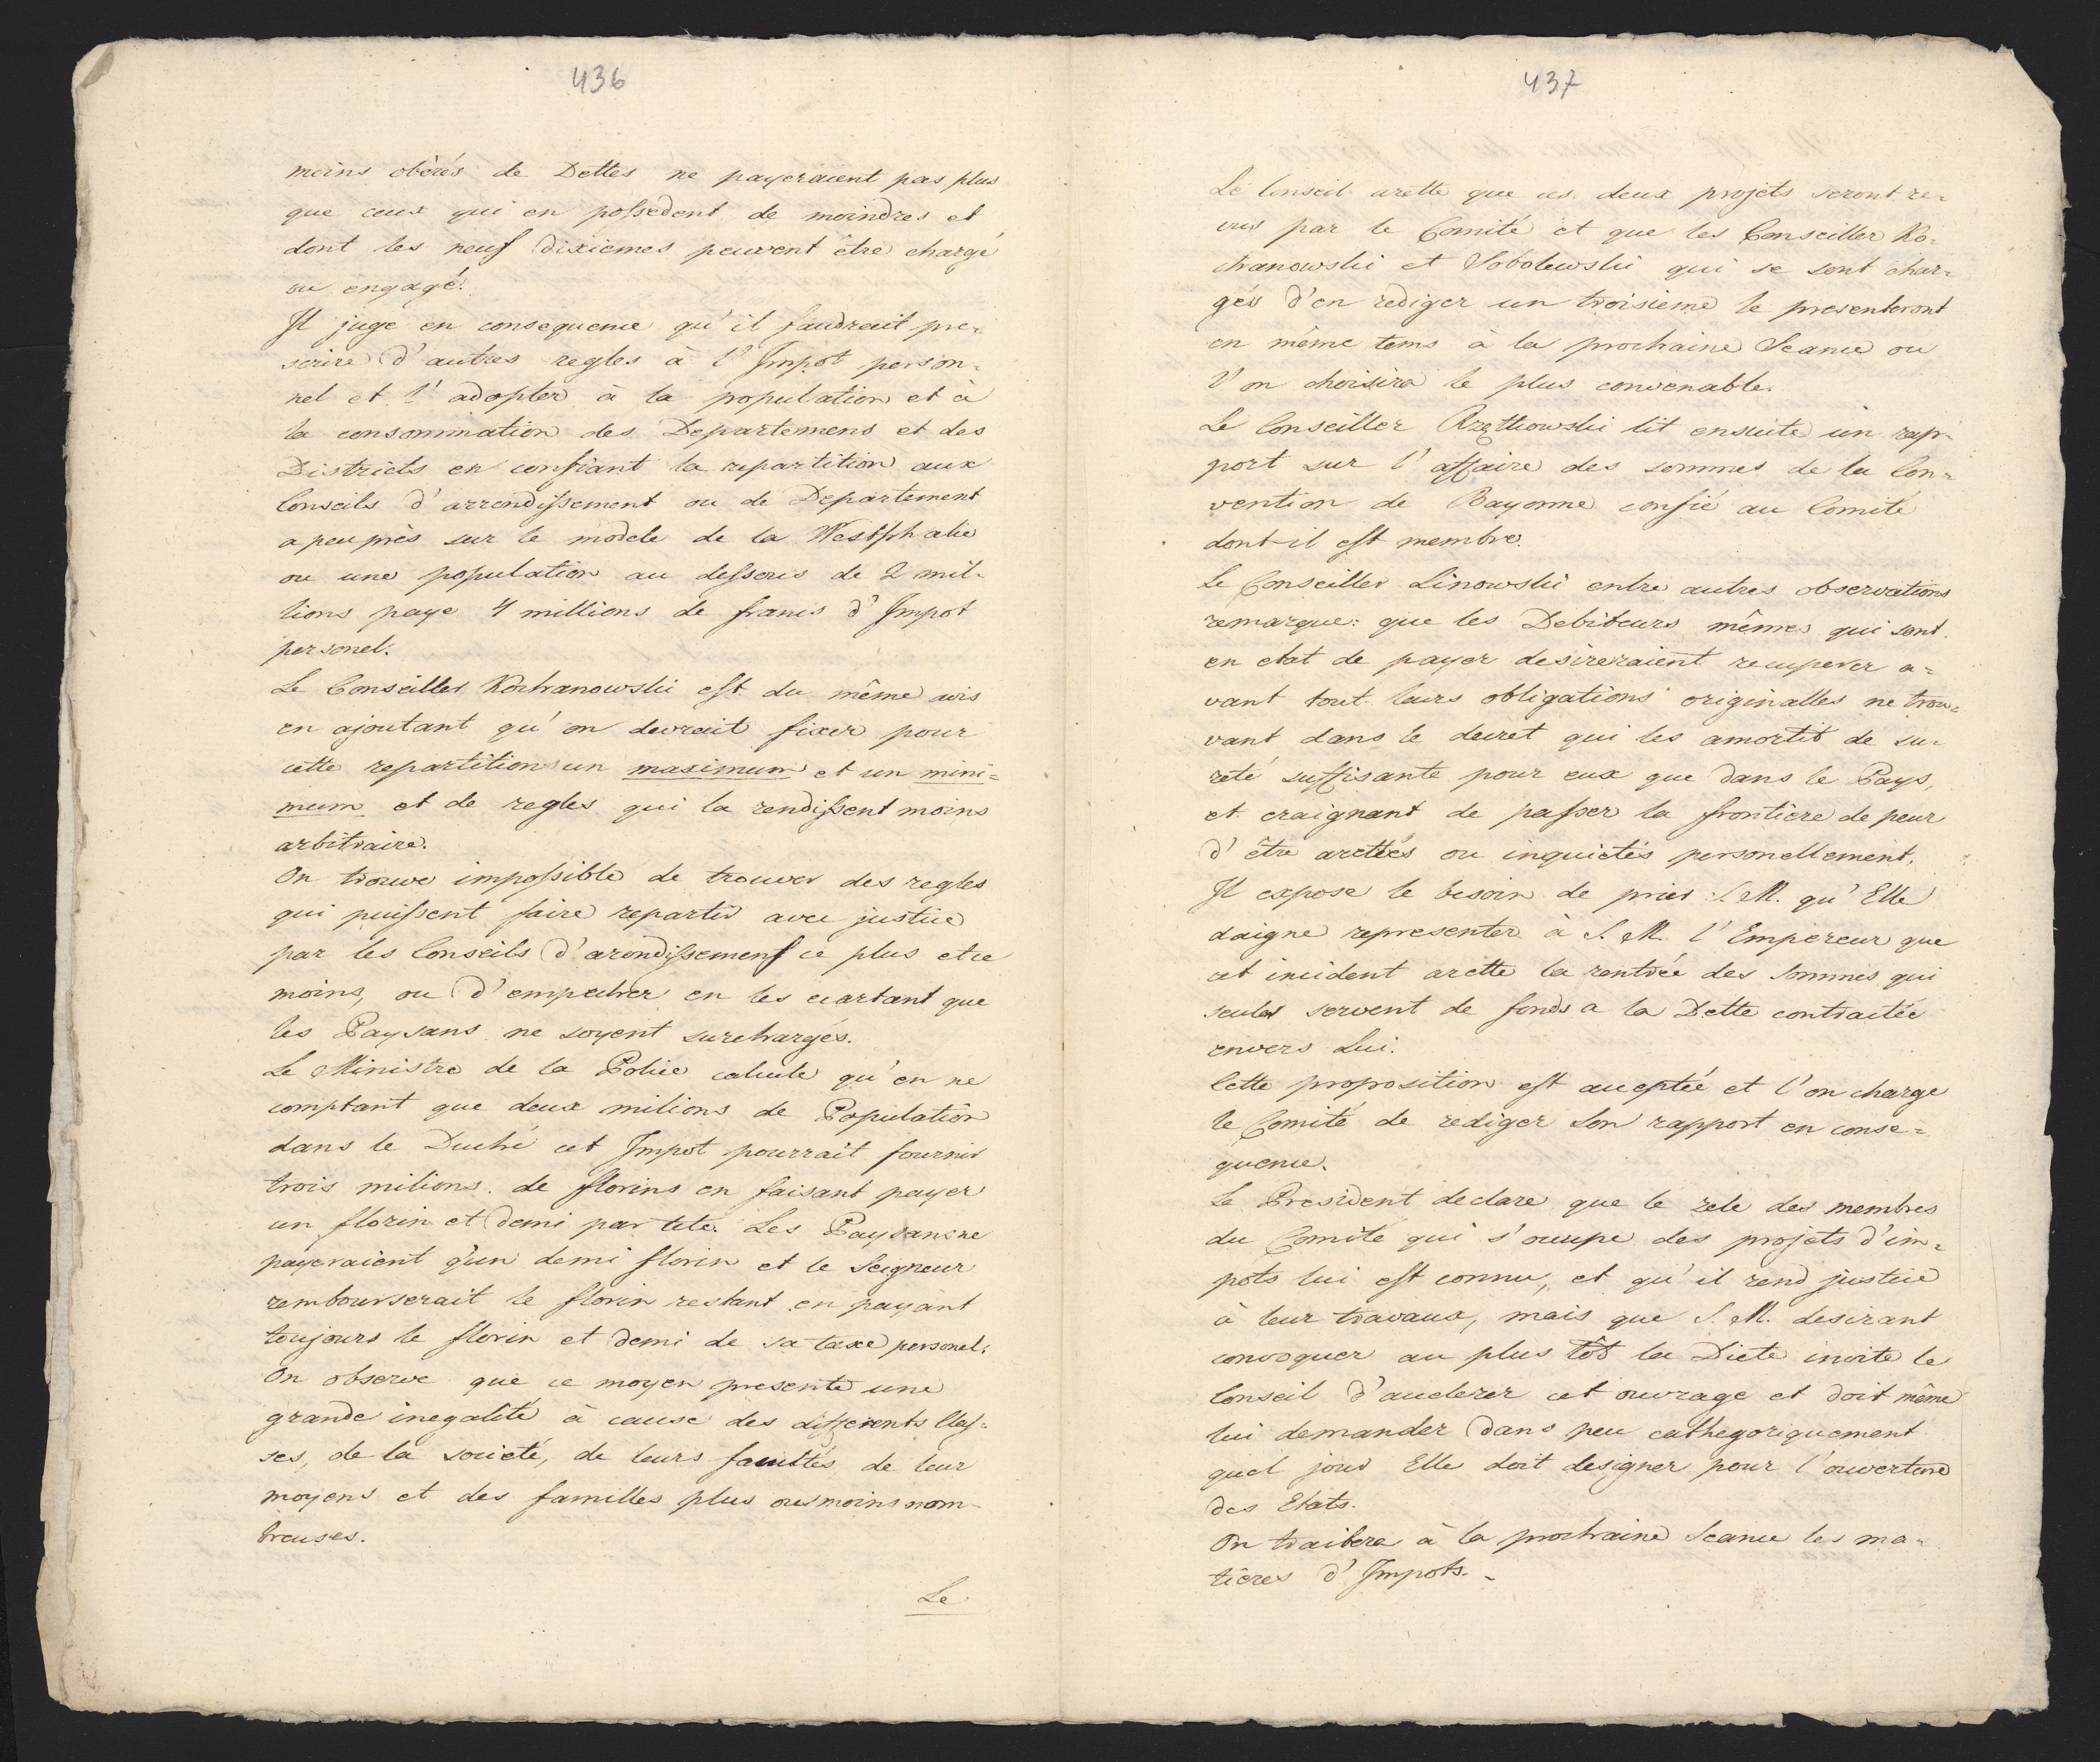 436
moins obèrés de Dettes ne payeraient pas plus
que ceux qui en possedent de moindres et
dont les neuf dixiemes peuvent être chargé
ou engagé.
Il juge en consequence qu'il faudrait pre=
scrire d'autres regles à l'Impot person=
nel et l'adopter à la population et à
la consommation des Departemens et des
Districts en confiant la repartition aux
Conseils d'arrondissement ou de Departement
apeuprès sur le modele de la Westphalie
ou une population au dessous de 2 mil=
lions paye 4 millions de francs d'Impot
personel.
Le Conseiller Kochanowski est du même avis
en ajoutant qu'on devrait fixer pour
cette repartition un maximum et un mini=
mum et de regles qui la rendissent moins
arbitraire.
On trouve impossible de trouver des regles
qui puissent faire repartir avec justice
par les Conseils d'arondissement ce plus et ce
moins, ou d'empecher en les ecartant que
les Paysans ne soyent surchargés.
Le Ministre de la Police calcule qu'en ne
comptant que deux milions de Population
dans le Duché cet Impot pourrait fournir
trois milions de florins en faisant payer
un florin et demi par tete. Les Paysans ne
payeraient q'un demi florin et le Seigneur
rembourserait le florin restant en payant
toujours le florin et demi de sa taxe personel.
On observe que ce moyen presente une
grande inegalité à cause des differents Clas=
ses, de la societé, de leurs facultés de leur
moyens et des familles plus ou moins nom=
breuses.
Le
437
Le Conseil arette que ces deux projets seront re=
vus par le Comité et que les Conseiller Ko=
chanowski et Sobolewski qui se sont char=
gés d'en rediger un troisieme le presenteront
en même tems à la prochaine Seance ou
l'on choisira le plus convenable.
Le Conseiller Rzętkowski lit ensuite un rap=
port sur l'affaire des sommes de la Con=
vention de Bayonne confié au Comité
dont il est membre.
Le Conseiller Linowski entre autres observations
remarque: que les Debiteurs mêmes qui sont
en etat de payer desireraient recuperer a=
vant tout leurs obligations originalles ne trou=
vant dans le decret qui les amortit de su=
reté suffisante pour eux que dans le Pays,
et craignant de passer la frontiere de peur
d'être arettés ou inquietés personellement.
Il expose le besoin de prier S. M. qu'Elle
daigne representer à S. M. l'Empereur que
cet incident arette la rentrée des Sommes qui
seules servent de fonds a la Dette contractée
envers Lui.
Cette proposition est acceptée et l'on charge
le Comité de rediger son rapport en conse=
quence.
Le President declare que le zele des membres
du Comité qui s'occupe des projets d'im=
pots lui est connu, et qu'il rend justice
à leur travaux, mais que S. M. desirant
convoquer au plus tôt la Diete invite le
Conseil d'accelerer cet ouvrage et doit même
lui demander dans peu cathegoriquement
quel jour Elle doit designer pour l'ouverture
des Etats.
On traitera à la prochaine Seance les ma=
tières d'Impots.